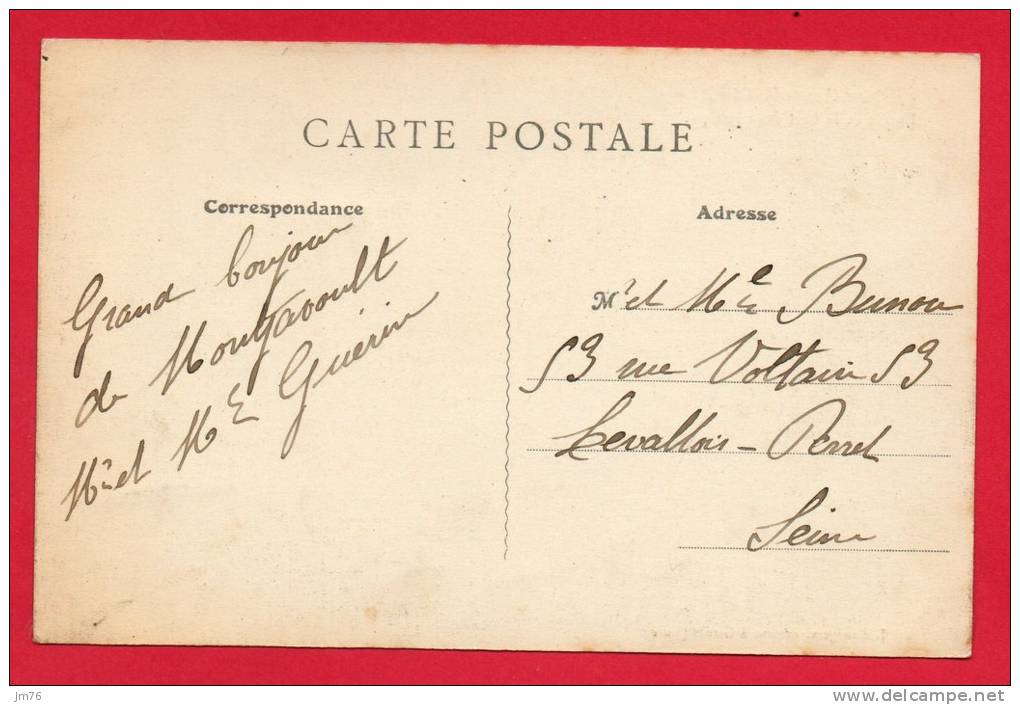 CARTE POSTALE
Correspondance
Grand bonjour
de Montgavoult
Mr et Me Guerin
Adresse
Mr et Me
53 rue Voltaire 53
Levallois - Perret
Seine
jm76
www.delcampe.net